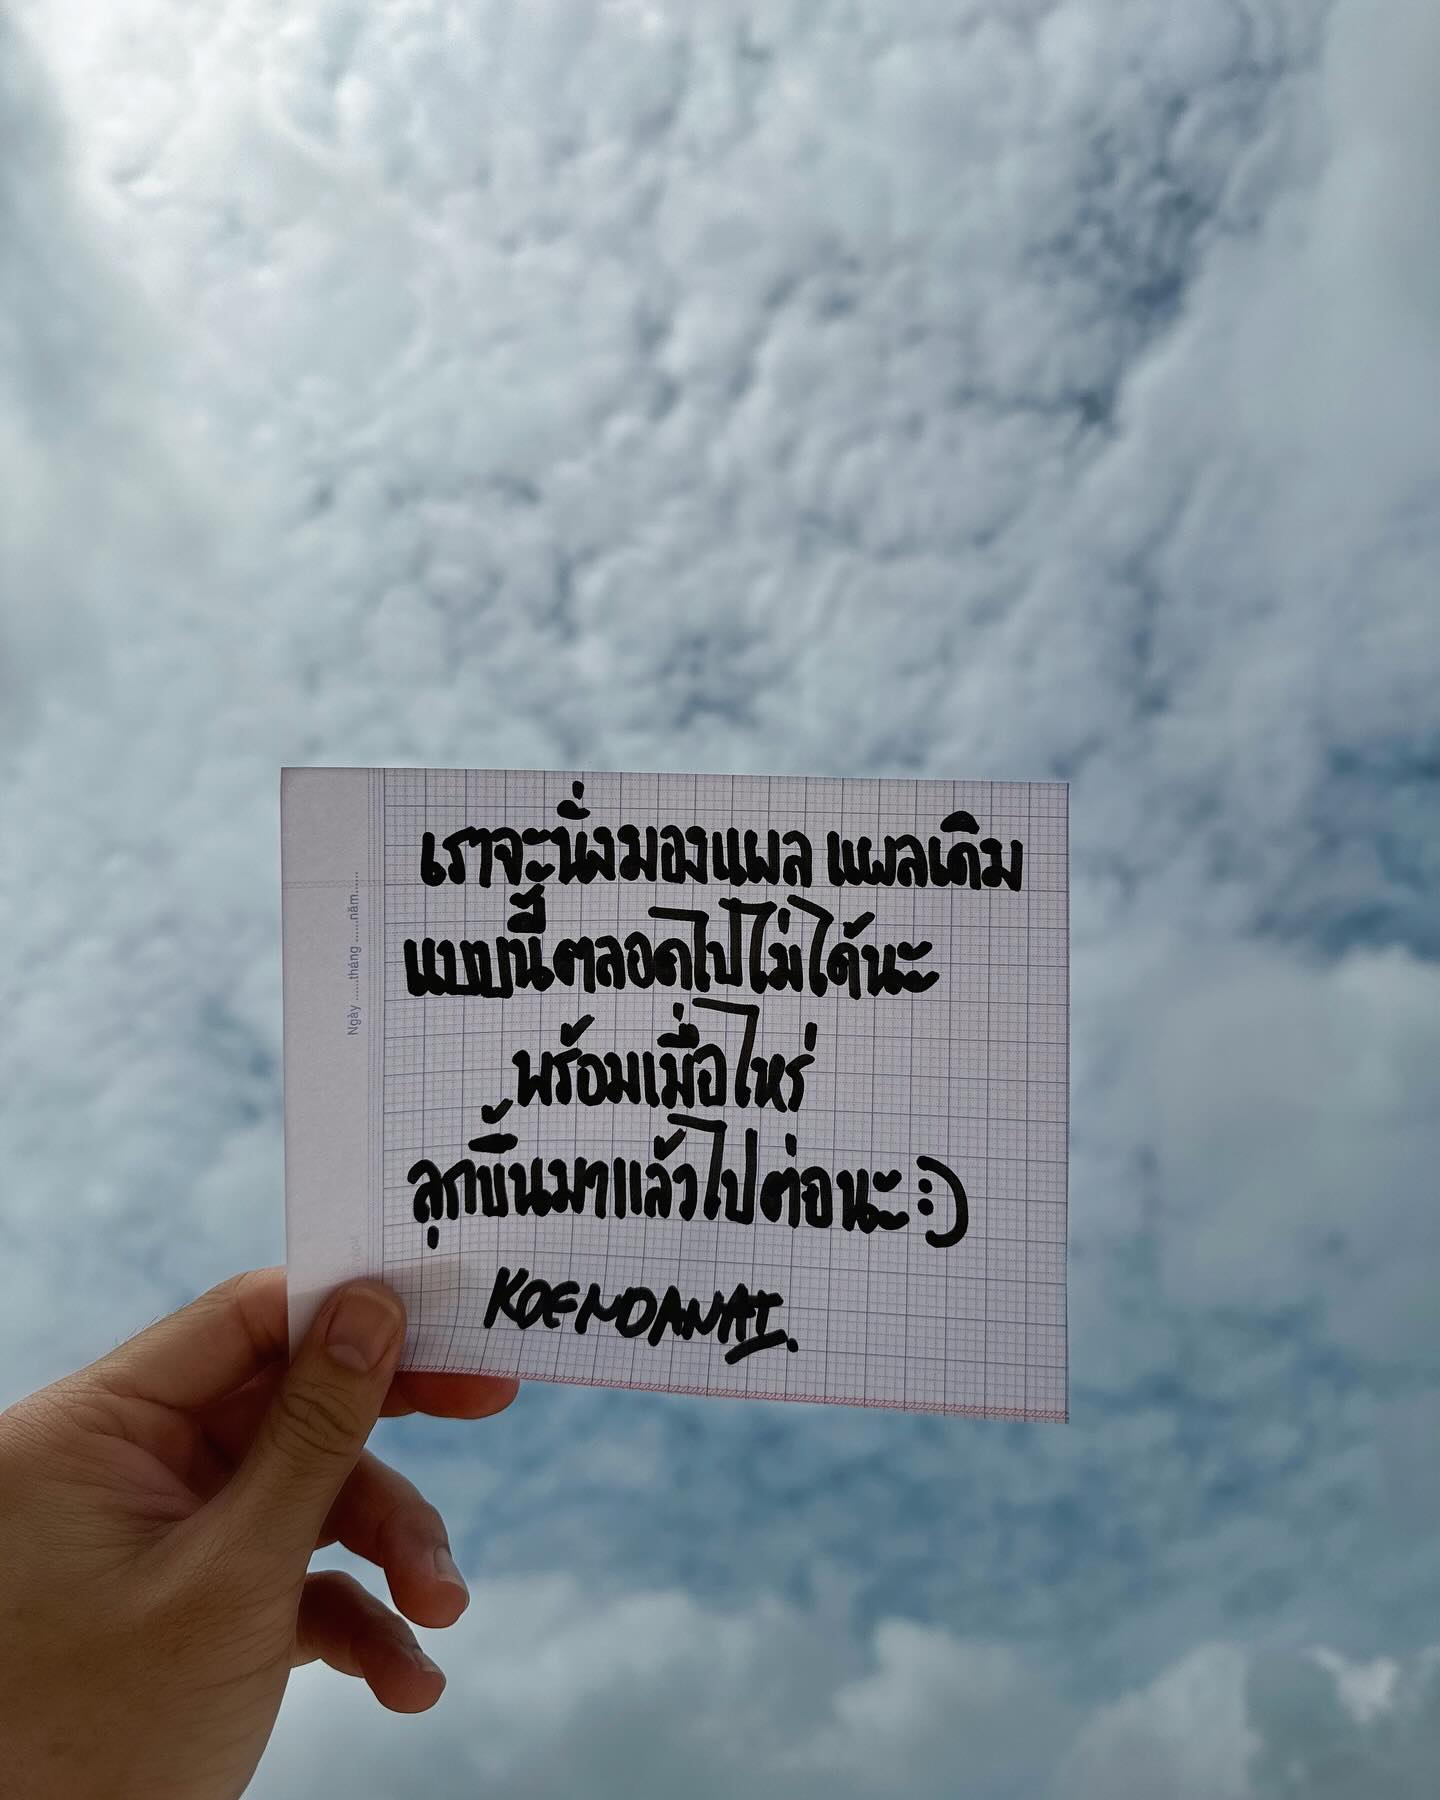 เราจะนั่งมองแผล แผลเดิม
แบบนี้ตลอดไปไม่ได้นะ
พร้อมเมื่อไหร่
ลุกขึ้นมาแล้วไปต่อนะ :)
KOENDANAI.
Ngày ...... tháng ...... năm.......